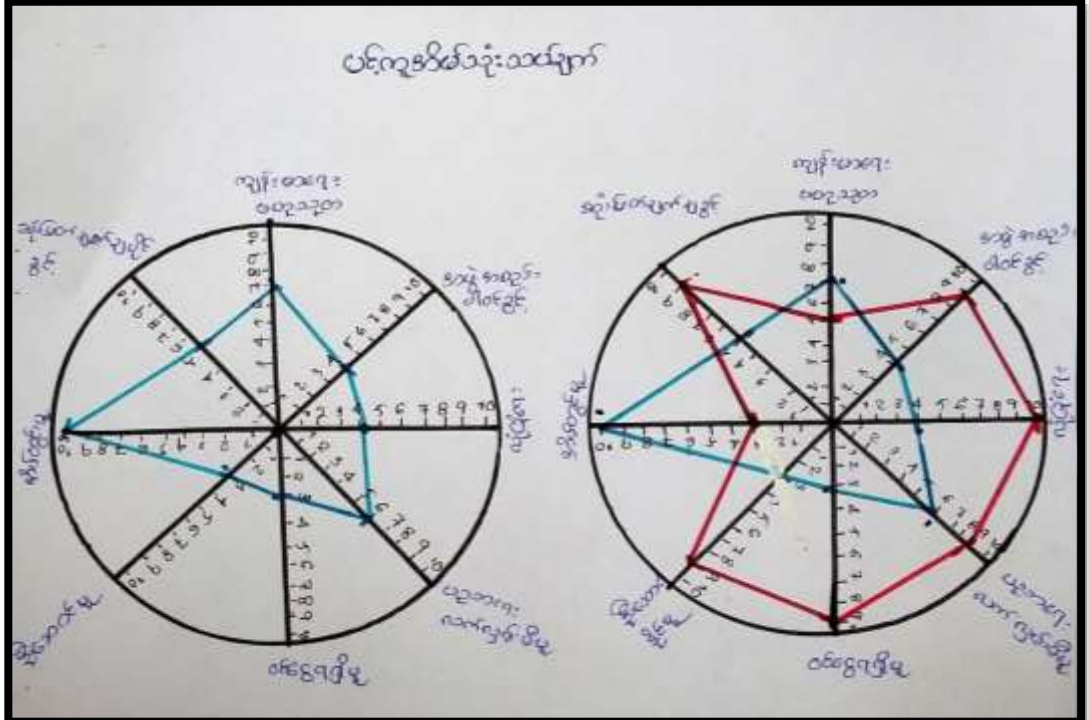 ပင့်ကူအိမ်သုံးသပ်ချက်
ကျန်းမာရေး
ဗဟုသုတ
အဖွဲ့အစည်း
ပါဝင်ခွင့်
လုံခြုံရေး
ပညာရေး
လက်လှမ်းမီမှု
ဝင်ငွေရရှိမှု
အိမ်တွင်းမှု
ဆုံးဖြတ်ချက်ချပိုင်
ခွင့်
1 2 3 4 5 6 7 8 9 10
ကျန်းမာရေး
ဗဟုသုတ
အဖွဲ့အစည်း
ပါဝင်ခွင့်
လုံခြုံရေး
ပညာရေး
လက်လှမ်းမီမှု
ဝင်ငွေရရှိမှု
အိမ်တွင်းမှု
ဆုံးဖြတ်ချက်ချခွင့်
1 2 3 4 5 6 7 8 9 10